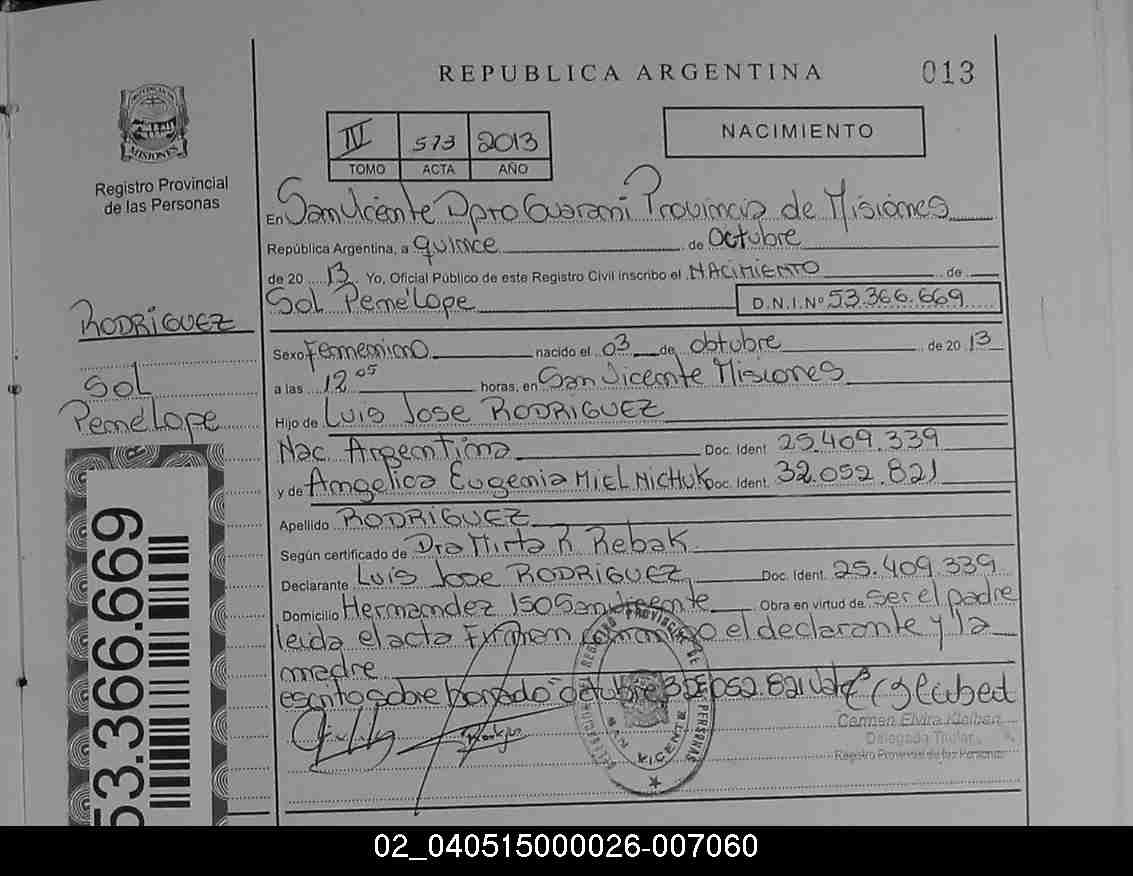 REPUBLICA ARGENTINA
013
PROVINCIA DE
MISIONES
Registro Provincial
de las Personas
IV 573 2013
TOMO ACTA AÑO
NACIMIENTO
En San Vicente Dpto Guarani Provincia de Misiones
República Argentina, a quince de Octubre
de 20 13 Yo, Oficial Público de este Registro Civil inscribo el NACIMIENTO de
Sol Penélope D.N.I.Nº 53.366.669
RODRIGUEZ
Sol
Penélope
Sexo Femenino nacido el 03 de obtubre de 20 13
a las 12 05 horas, en San Vicente Misiones
Hijo de Luis Jose RODRIGUEZ
Nac. Argentina Doc. Ident. 25.409.339
y de Angelica Eugenia MIELNICHUK Doc. Ident. 32.052.821
Apellido RODRIGUEZ
Según certificado de Dra Mirta R. Rebak
Declarante Luis Jose RODRIGUEZ Doc. Ident. 25.409.339
Domicilio Hernandez 150 San Vicente Obra en virtud de ser el padre
leida el acta Firman conmigo el declarante y la
madre
escrito sobre borrado "octubre 32.052.821 Vale
Carmen Elvira Kleibert
Delegada Titular
Registro Provincial de las Personas
REGISTRO PROVINCIAL DE LAS PERSONAS
SAN VICENTE
53.366.669
02_040515000026-007060